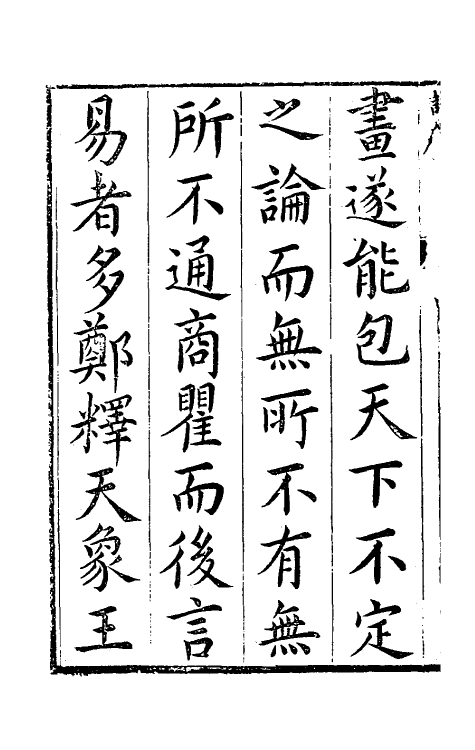 畫遂能包天下不定
之論而無所不有無
所不通商瞿而後言
易者多鄭釋天象王